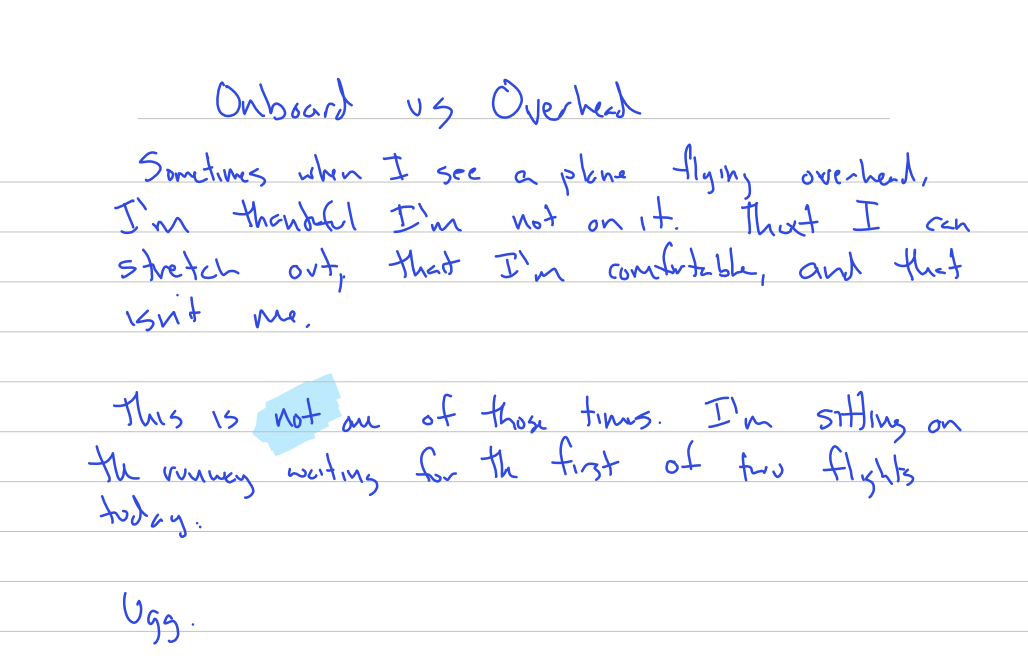 Onboard vs Overhead
Sometimes when I see a plane flying overhead,
I'm thankful I'm not on it. That I can
stretch out, that I'm comfortable, and that
isn't me.
This is not one of those times. I'm sitting on
the runway waiting for the first of two flights
today.
Ugg.